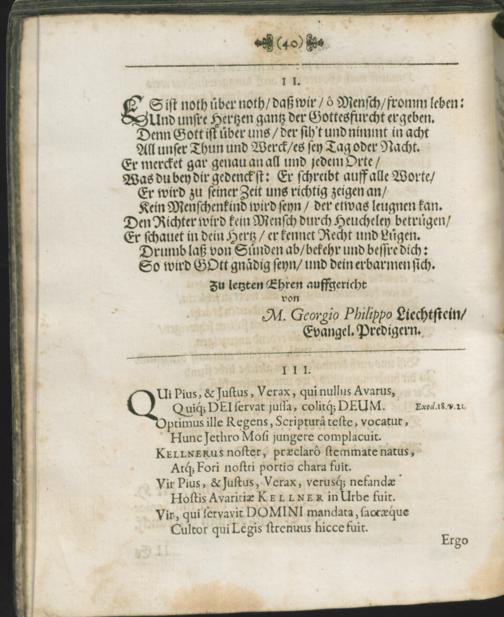 (40)
II.
ES ist noth über noth/ daß wir/ ô Mensch/ fromm leben:
Und unsre Hertzen gantz der Gottesfurcht ergeben.
Denn Gott ist über uns/ der sih't und nimmt in acht
All unser Thun und Werck/ es sey Tag oder Nacht.
Er mercket gar genau an all und jedem Orte/
Was du bey dir gedenckst: Er schreibt auff alle Worte/
Er wird zu seiner Zeit uns richtig zeigen an/
Kein Menschenkind wird seyn/ der etwas leugnen kan.
Den Richter wird kein Mensch durch Heucheley betrügen/
Er schauet in dein Hertz/ er kennet Recht und Lügen.
Drumb laß von Sünden ab/ bekehr und bessre dich:
So wird GOtt gnädig seyn/ und dein erbarmen sich.
Zu letzten Ehren auffgericht
von
M. Georgio Philippo Liechtstein/
Evangel. Predigern.
III.
QUi Pius, & Justus, Verax, qui nullus Avarus,
Quiq; DEI servat jussa, colitq; DEUM. Exod. 18. v. 21.
Optimus ille Regens, Scripturâ teste, vocatur,
Hunc Jethro Mosi jungere complacuit.
KELLNERUS noster, præclarô stemmate natus,
Atq; Fori nostri portio chara fuit.
Vir Pius, & Justus, Verax, verusq; nefandæ
Hostis Avaritiæ KELLNER in Urbe fuit.
Vir, qui servavit DOMINI mandata, sacræque
Cultor qui Legis strenuus hicce fuit.
Ergo